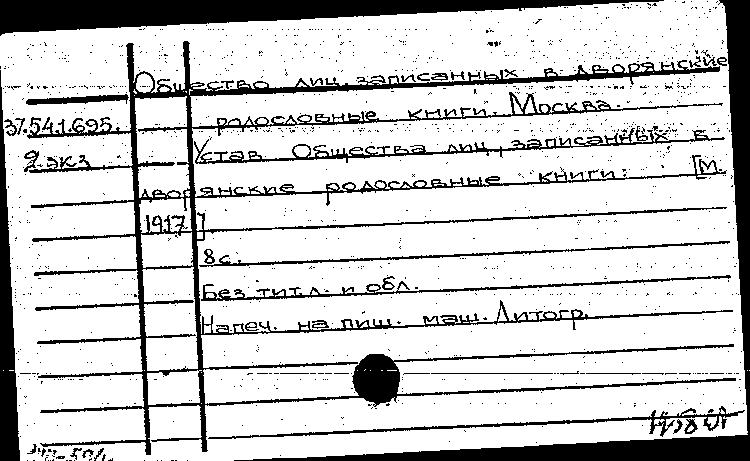 Общество лиц, записанных в дворянские
37.54.1.695. родословные книги. Москва.
2 экз Устав Общества лиц, записанных в
дворянские родословные книги. [М.
1917].
8 с.
Без тит.л. и обл.
Напеч. на пиш. маш. Литогр.